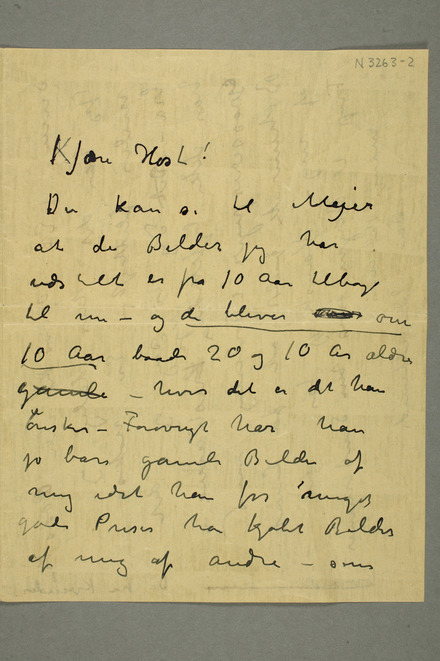 N.3263-2
Kjære Høst!
Du kan si til Meier
at de Billeder jeg har
udstillet er fra 10 Aar tilbage
til nu – og de bliver om
10 Aar baade 20 og 10 Aar ældre
gamle – hvis det er det han
ønsker – Forøvrigt har han
jo bare gamle Billeder af
mig idet han for meget
gode Priser har kjøbt Billeder
af mig af andre – som